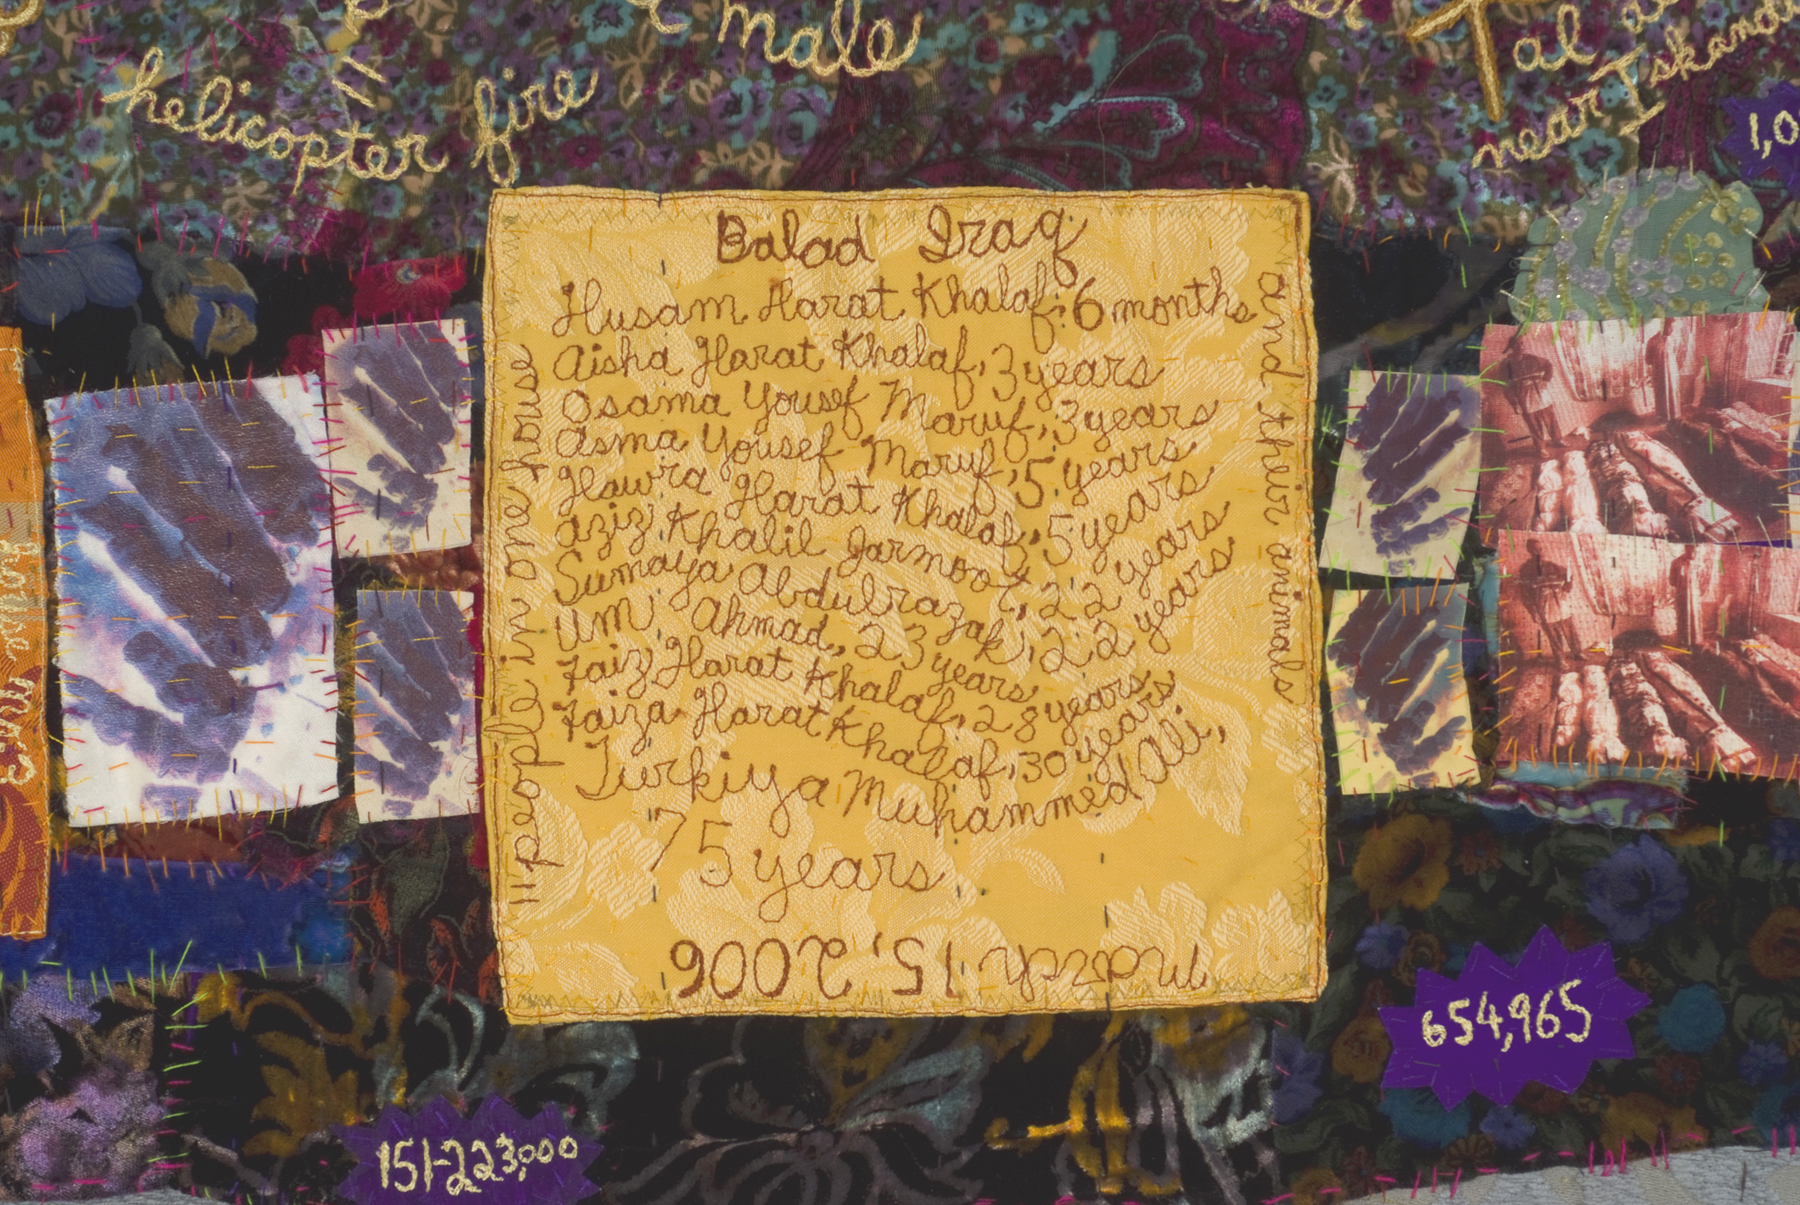 male
helicopter fire
al
near Iskand
1,0
Balad Iraq
Husam Harat Khalaf, 6 months
Aisha Harat Khalaf, 3 years
Osama Yousef Maruf, 3 years
Asma Yousef Maruf, 5 years
Hawra Harat Khalaf, 5 years
Aziz Khalil Jarmoot, 22 years
Sumaya Abdulrazak, 22 years
Um Ahmad, 23 years
Faiz Harat Khalaf, 28 years
Faiza Harat Khalaf, 30 years
Turkiya Muhammed Ali,
75 years
11 people in one house
and their animals
March 15, 2006
654,965
151-223,000